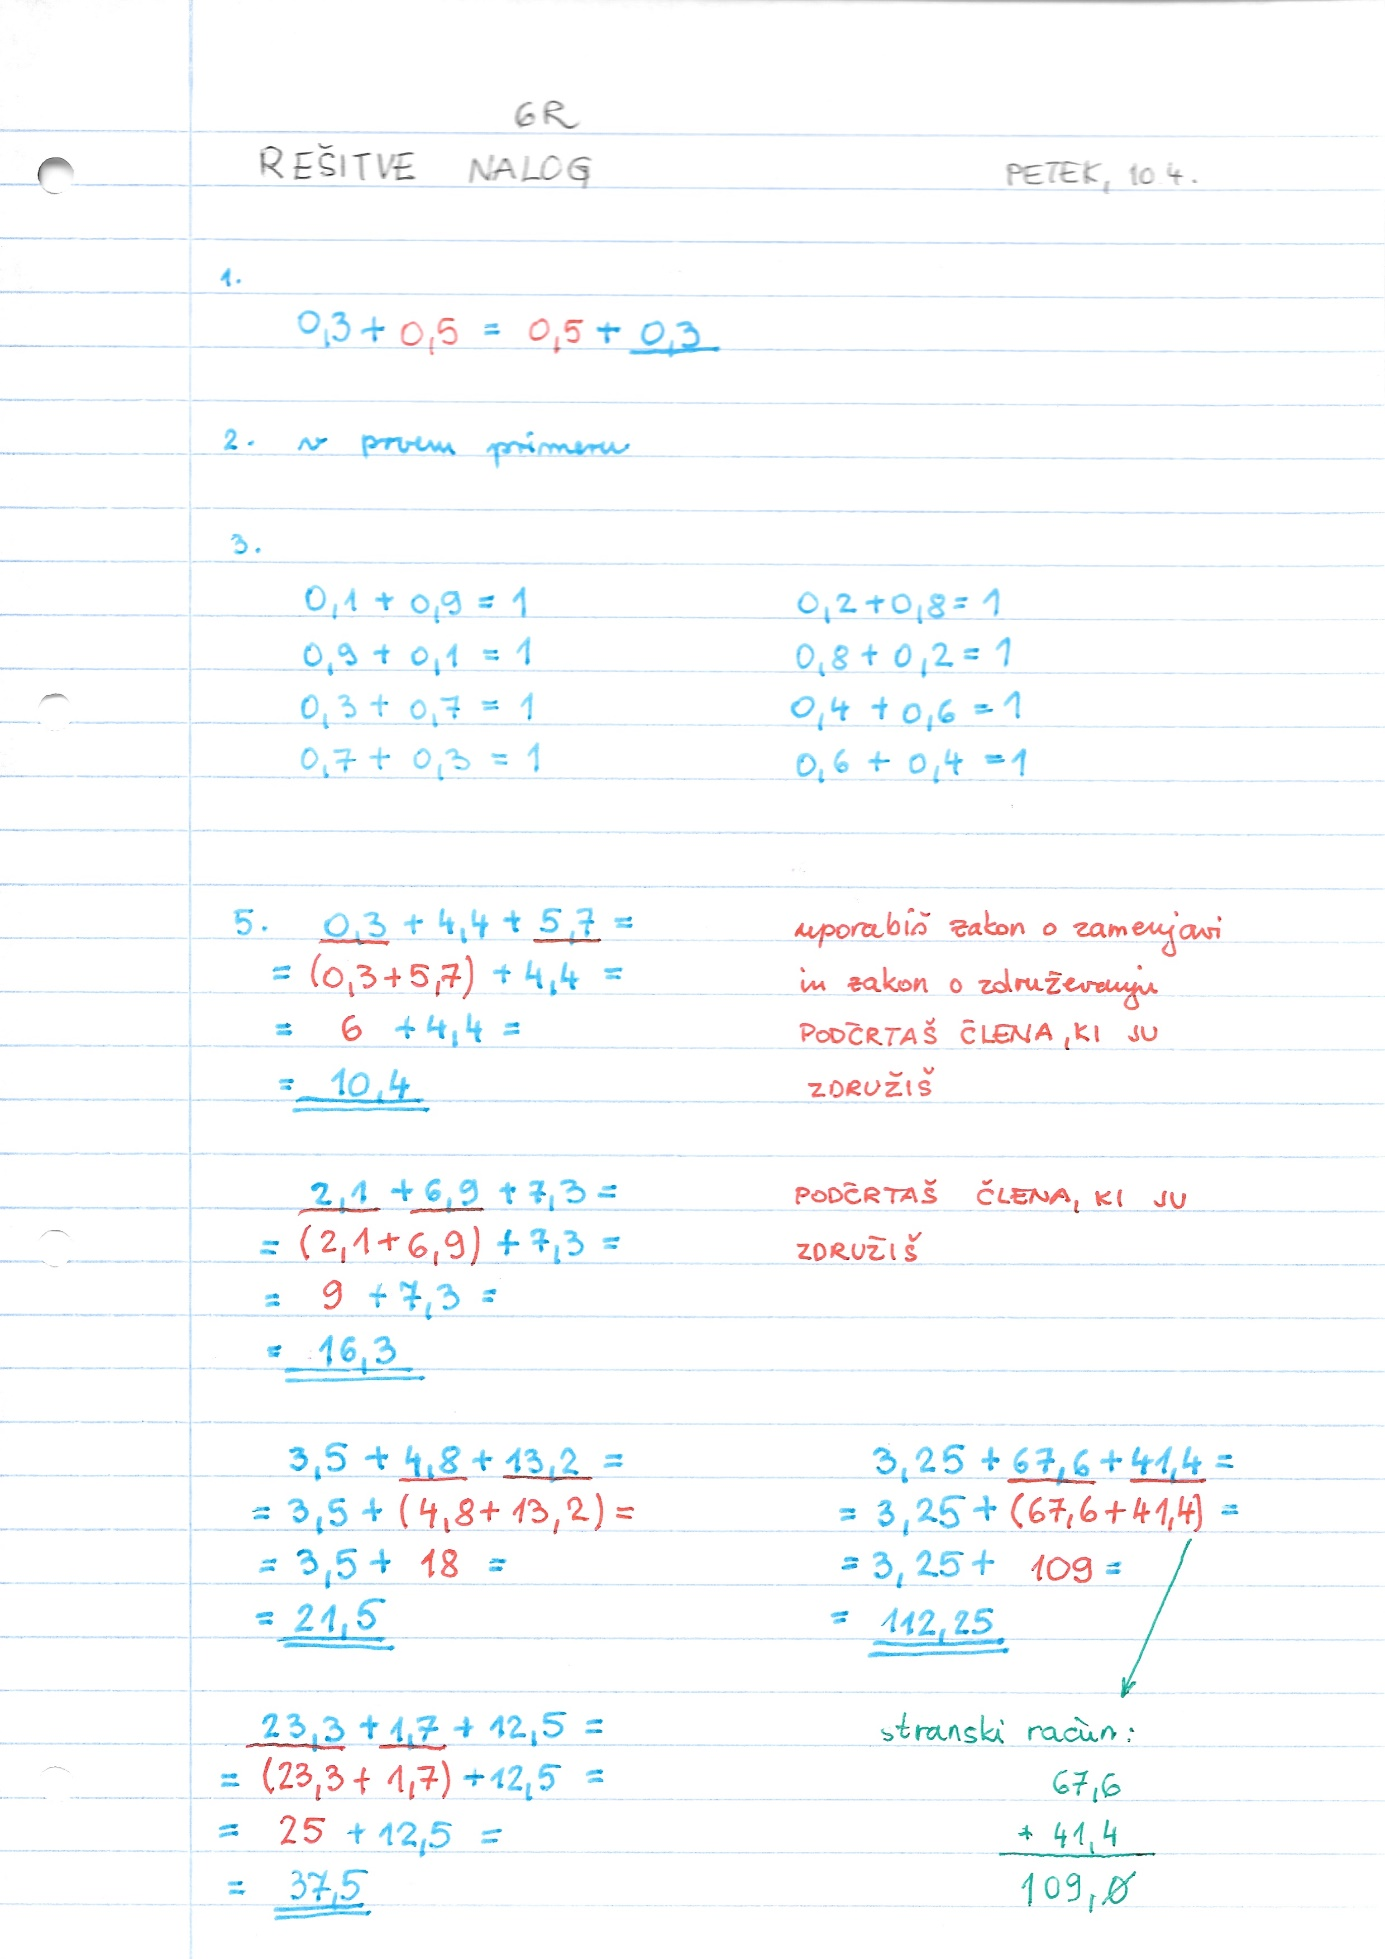 6R
REŠITVE NALOG
PETEK, 10.4.
1.
0,3 + 0,5 = 0,5 + 0,3
2. v prvem primeru
3.
0,1 + 0,9 = 1
0,9 + 0,1 = 1
0,3 + 0,7 = 1
0,7 + 0,3 = 1
0,2 + 0,8 = 1
0,8 + 0,2 = 1
0,4 + 0,6 = 1
0,6 + 0,4 = 1
5. 0,3 + 4,4 + 5,7 =
= (0,3 + 5,7) + 4,4 =
= 6 + 4,4 =
= 10,4
uporabiš zakon o zamenjavi
in zakon o združevanju
PODČRTAŠ ČLENA, KI JU
ZDRUŽIŠ
2,1 + 6,9 + 7,3 =
= (2,1 + 6,9) + 7,3 =
= 9 + 7,3 =
= 16,3
PODČRTAŠ ČLENA, KI JU
ZDRUŽIŠ
3,5 + 4,8 + 13,2 =
= 3,5 + (4,8 + 13,2) =
= 3,5 + 18 =
= 21,5
3,25 + 67,6 + 41,4 =
= 3,25 + (67,6 + 41,4) =
= 3,25 + 109 =
= 112,25
23,3 + 1,7 + 12,5 =
= (23,3 + 1,7) + 12,5 =
= 25 + 12,5 =
= 37,5
stranski račun:
67,6
+ 41,4
109,0